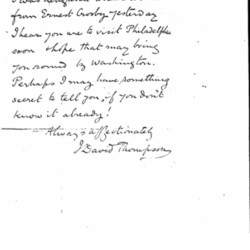 from Ernest Crosby yesterday
I hear you are to visit Philadelphia
soon & hope that may bring
you round by Washington.
Perhaps I may have something
secret to tell you, if you don't
know it already!
Always affectionately
J David Thompson